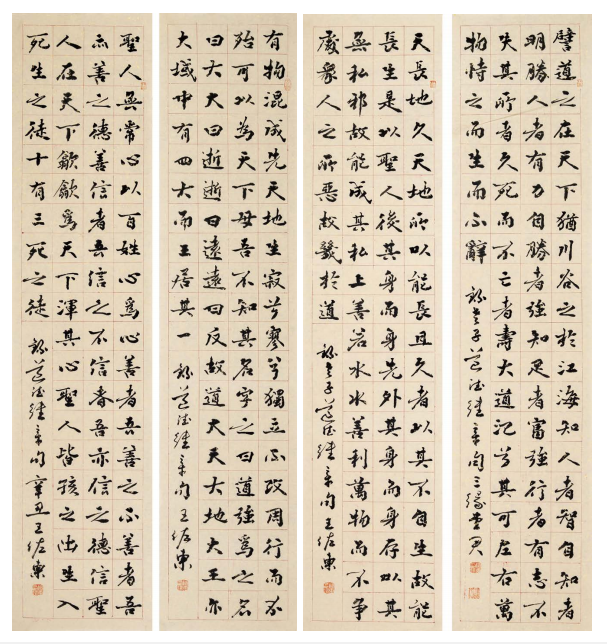 譬道之在天下猶川谷之於江海知人者智自知者
明勝人者有力自勝者強知足者富強行者有志不
失其所者久死而不亡者壽大道氾兮其可左右萬
物恃之而生而不辭 錄老子道德經章句三緣堂
天長地久天地所以能長且久者以其不自生故能
長生是以聖人後其身而身先外其身而身存以其
無私邪故能成其私上善若水水善利萬物而不爭
處衆人之所惡故幾於道 錄老子道德經章句王佐東
有物混成先天地生寂兮寥兮獨立不改周行而不
殆可以為天下母吾不知其名字之曰道強為之名
曰大大曰逝逝曰遠遠曰反故道大天大地大王亦
大域中有四大而王居其一 錄道德經章句王佐東
聖人無常心以百姓心為心善者吾善之不善者吾
亦善之德善信者吾信之不信者吾亦信之德信聖
人在天下歙歙為天下渾其心聖人皆孩之出生入
死生之徒十有三死之徒 錄道德經章句辛丑王佐東